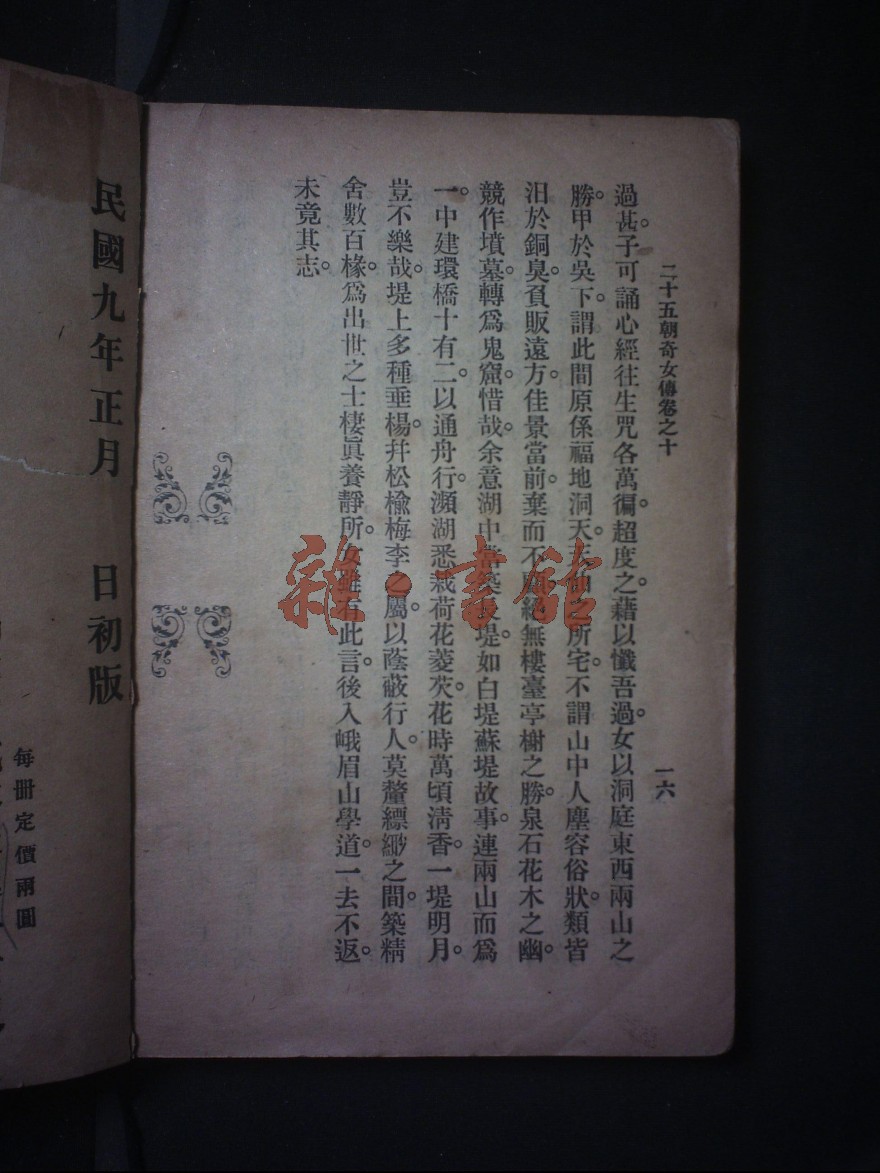 二十五朝奇女傳卷之十
一六
過甚。子可誦心經往生咒各萬徧。超度之。藉以懺吾過。女以洞庭東西兩山之
勝。甲於吳下。謂此間原係福地洞天。所宅。不謂山中人塵容俗狀。類皆
汨於銅臭。負販遠方。佳景當前。棄而不絕無樓臺亭榭之勝。泉石花木之幽。
競作墳墓。轉爲鬼窟。惜哉。余意湖中當築長堤。如白堤蘇堤故事。連兩山而爲
一。中建環橋十有二。以通舟行。瀕湖悉栽荷花菱芡。花時萬頃淸香。一堤明月。
豈不樂哉。堤上多種垂楊。幷松楡梅李之屬。以蔭蔽行人。莫釐縹緲之間。築精
舍數百椽。爲出世之士棲眞養靜所。女雖有此言。後入峨眉山學道。一去不返。
未竟其志。
民國九年正月 日初版
每冊定價兩圓
雜·書館